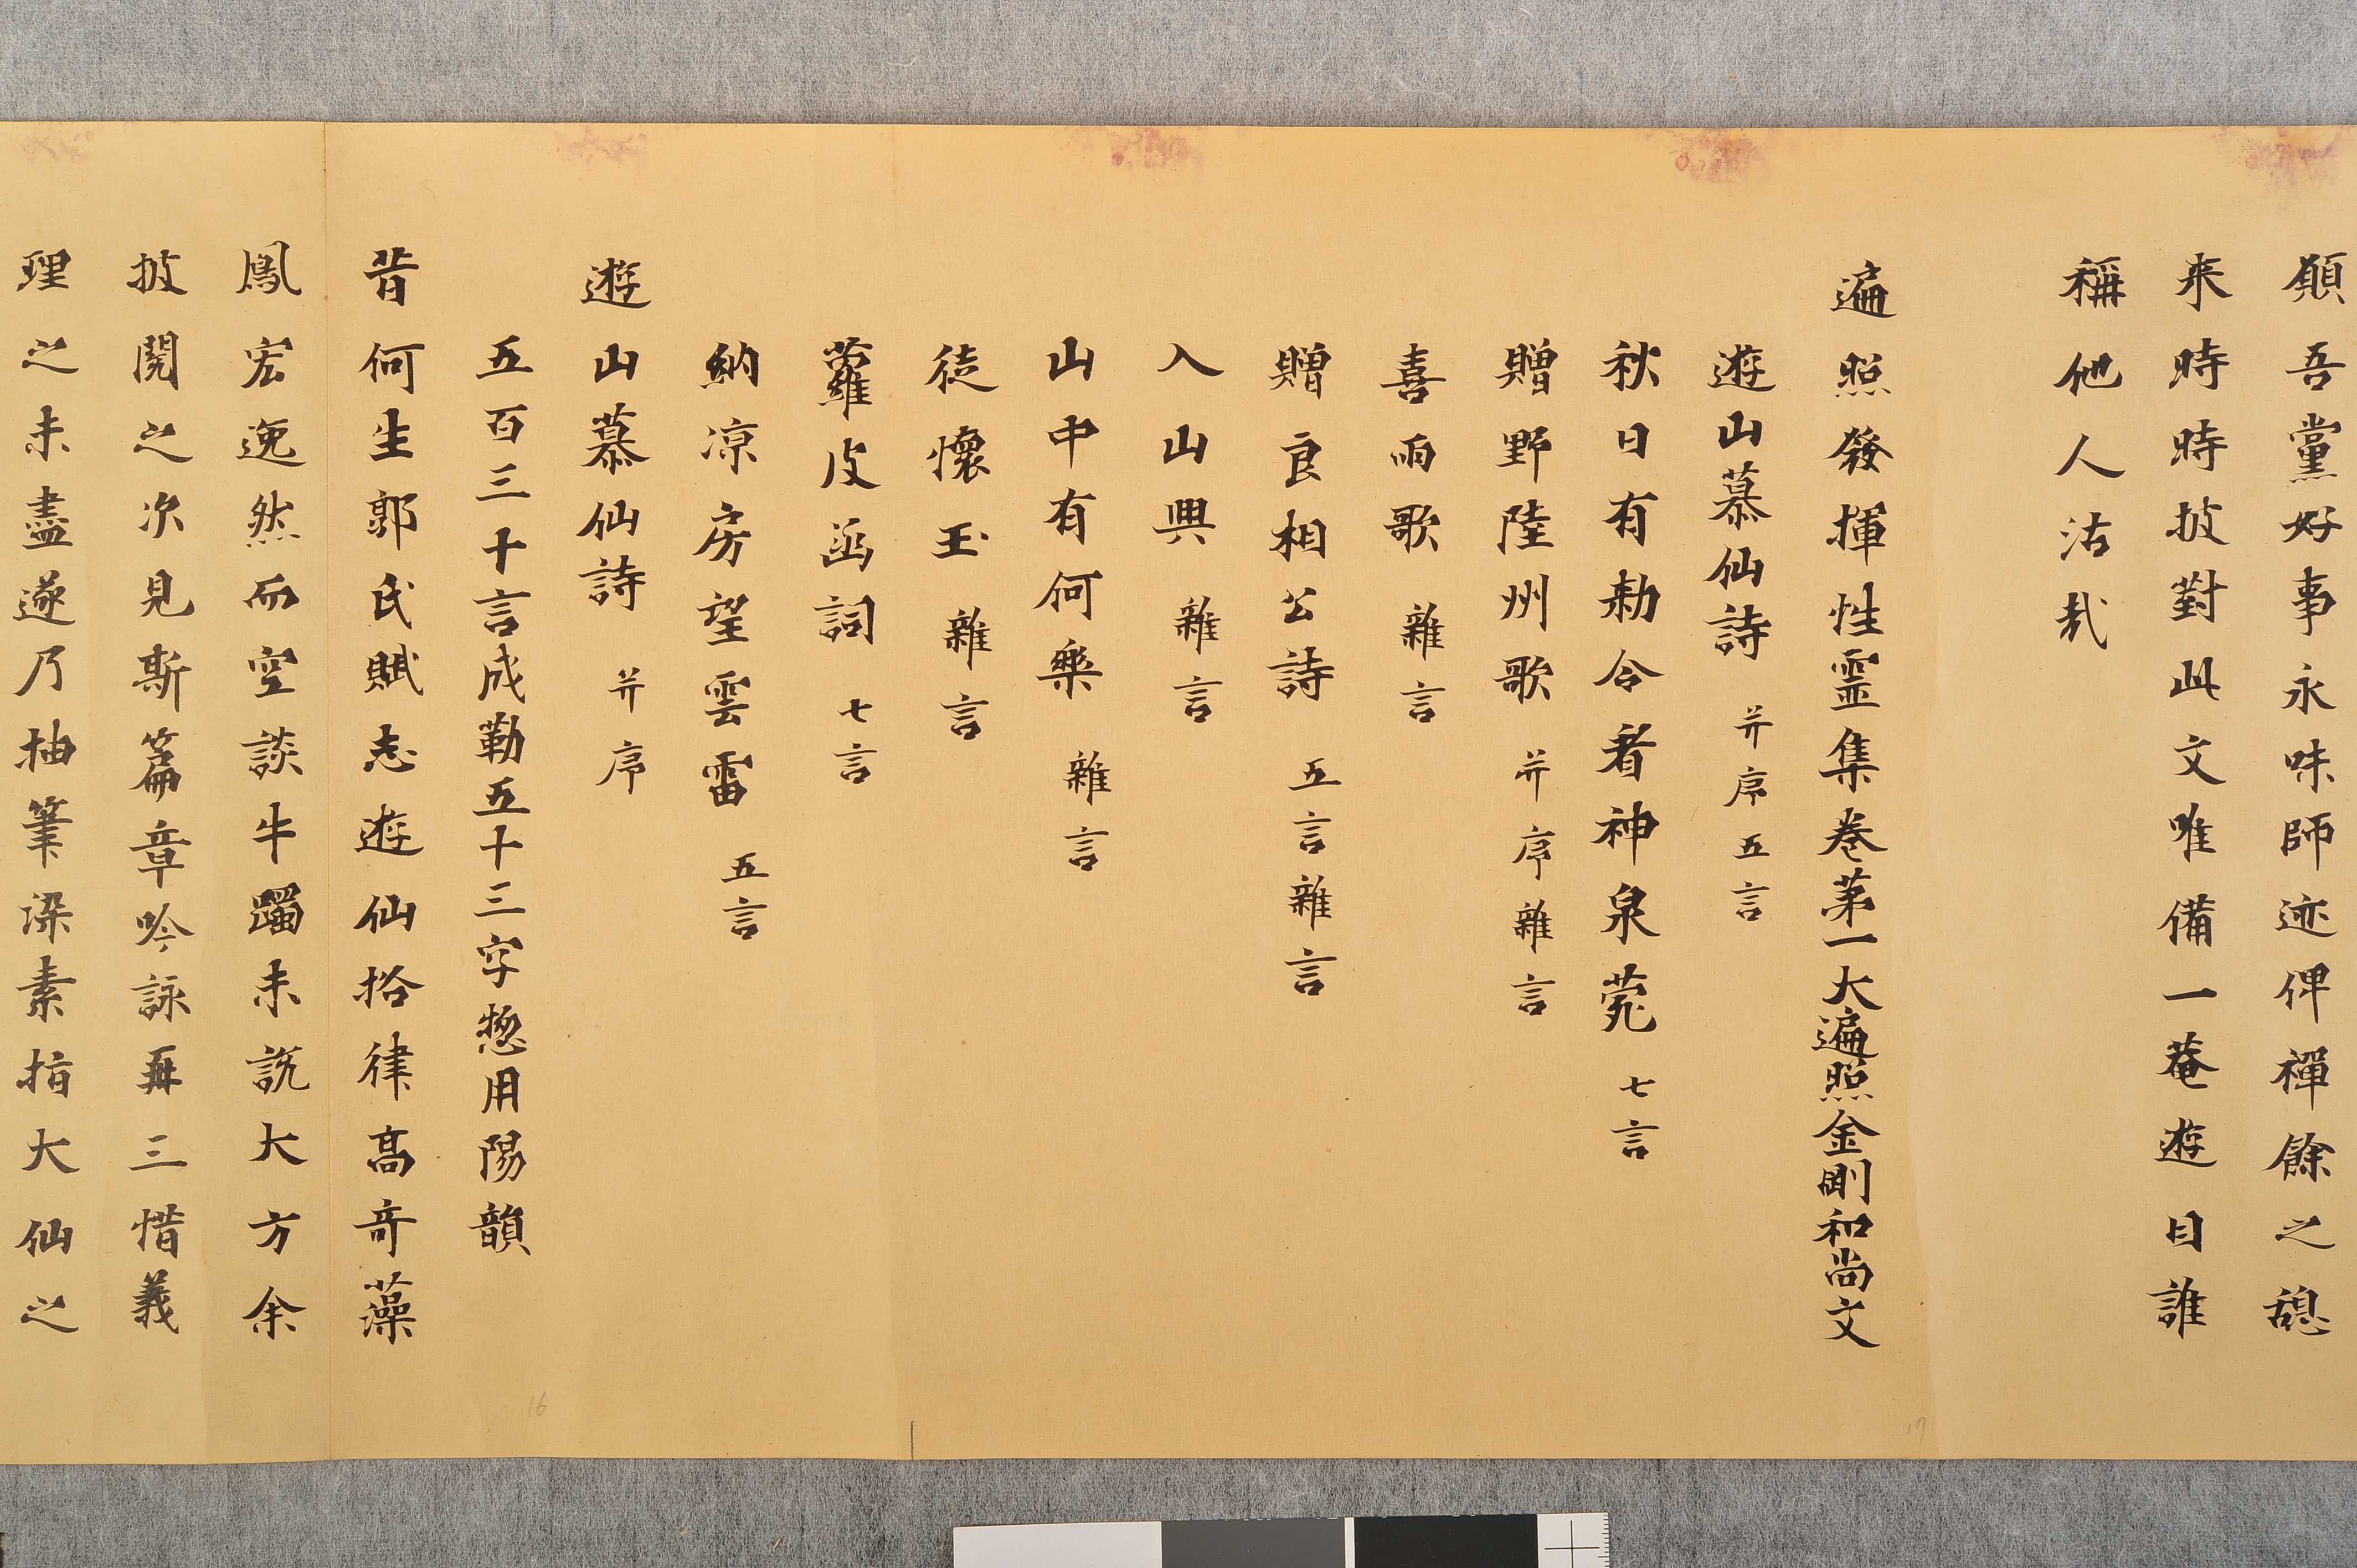 願吾黨好事永味師迹俾禪餘之憩
来時時披對此文唯備一菴遊目誰
稱他人沽哉
遍照發揮性霊集巻苐一大遍照金剛和尚文
遊山慕仙詩 并序五言
秋日有勅令看神泉菀 七言
贈野陸州歌 并序雜言
喜雨歌 雜言
贈良相公詩 五言雜言
入山興 雜言
山中有何樂 雜言
徒懷玉 雜言
蘿皮函詞 七言
納凉房望雲雷 五言
遊山慕仙詩 并序
五百三十言成勒五十三字惣用陽韻
昔何生郭氏賦志遊仙格律高奇藻
鳳宏逸然而空談牛躅未說大方余
披閱之次見斯篇章吟詠再三惜義
理之未盡遂乃抽筆染素指大仙之
16
17